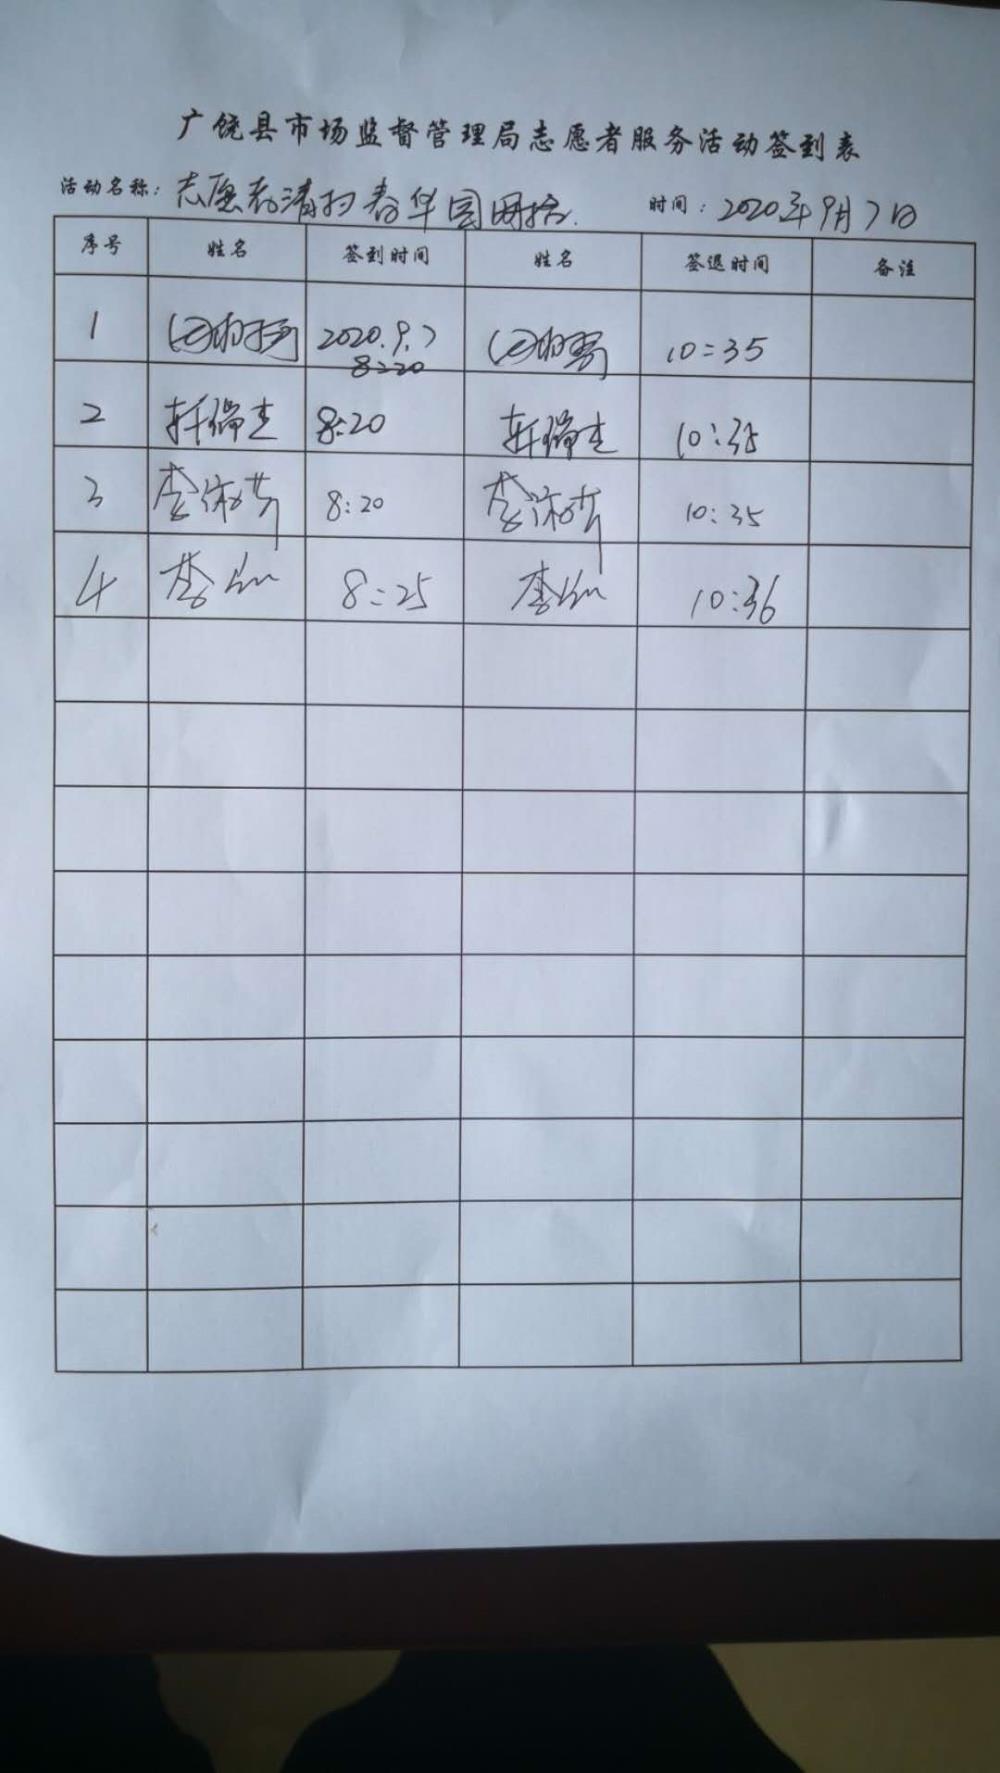 广饶县市场监督管理局志愿者服务活动签到表
活动名称：志愿者清扫春华园网格. 时间：2020年9月7日
序号 姓名 签到时间 姓名 签退时间 备注
1 2020.9.7 8:20 10:35
2 轩瑞杰 8:20 轩瑞杰 10:35
3 李淑芳 8:20 李淑芳 10:35
4 李 8:25 李 10:36